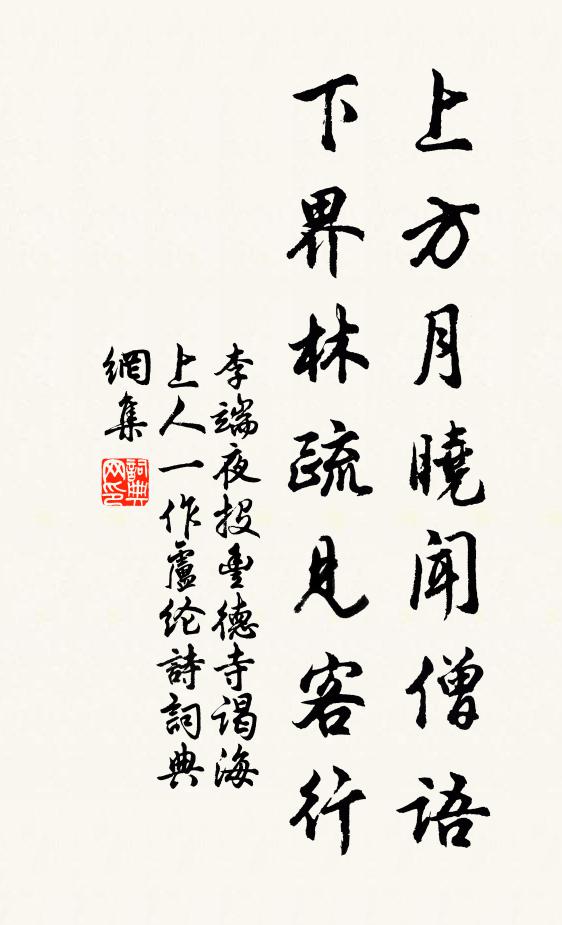 上方月曉聞僧語
下界林疏見客行
李端夜投豊德寺谒海
上人一作盧纶詩詞典
網集
詞典網印